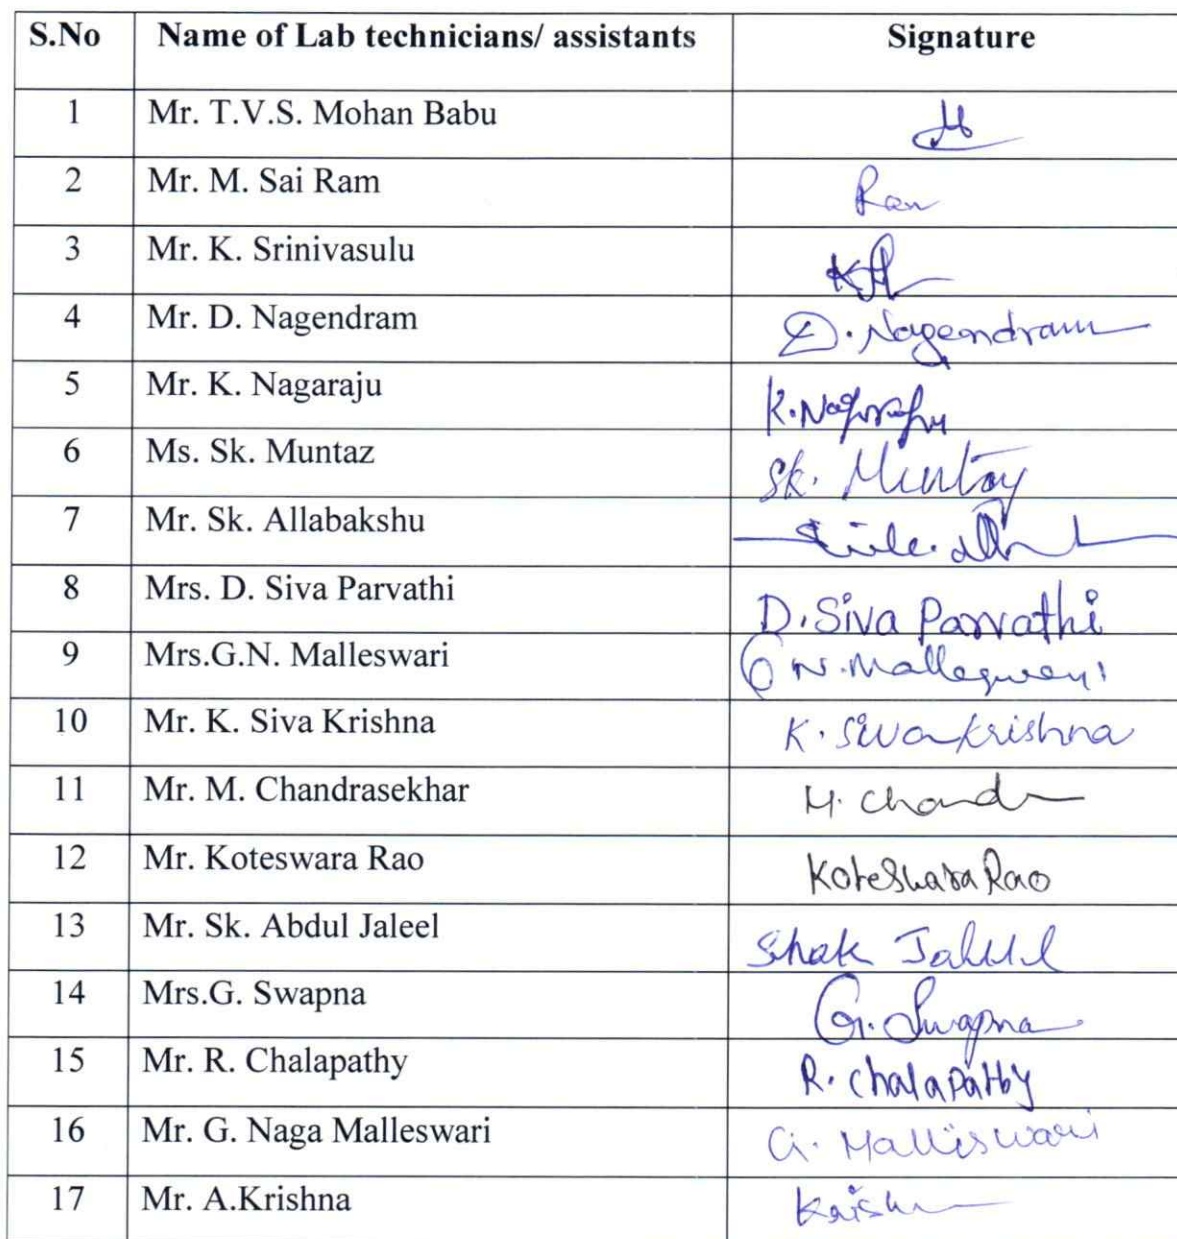 S.No Name of Lab technicians/ assistants Signature
1 Mr. T.V.S. Mohan Babu
2 Mr. M. Sai Ram Ram
3 Mr. K. Srinivasulu
4 Mr. D. Nagendram D. Nagendram
5 Mr. K. Nagaraju K. Nagaraju
6 Ms. Sk. Muntaz Sk. Muntaz
7 Mr. Sk. Allabakshu
8 Mrs. D. Siva Parvathi D. Siva Parvathi
9 Mrs.G.N. Malleswari G N. Malleswari
10 Mr. K. Siva Krishna K. Siva krishna
11 Mr. M. Chandrasekhar M. Chand
12 Mr. Koteswara Rao Koteswara Rao
13 Mr. Sk. Abdul Jaleel Shak
14 Mrs.G. Swapna G. Swapna
15 Mr. R. Chalapathy R. Chalapathy
16 Mr. G. Naga Malleswari G. Malliswari
17 Mr. A.Krishna